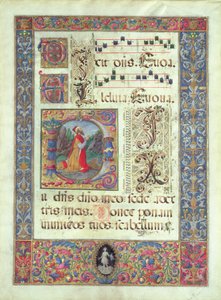 Euoua.
Alleluia Euoua.
DIX
it dñs dño meo: sede a dex
tris meis. Donec ponam
inimicos tuos scabellum